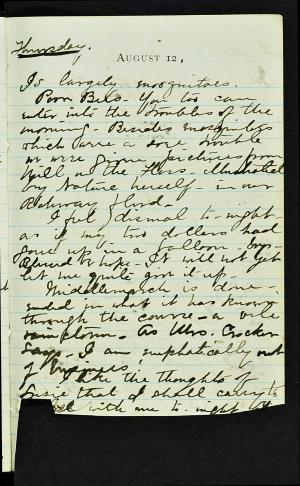 Thursday.
AUGUST 12,
Is largely mosquitoes.
Poor Bess - You too can
enter into the troubles of the
morning - Besides mosquitoes
which are a sore trouble
we were given pictures from
on the - illustrated
by Nature herself - in our
Rahway flood.
I feel dismal to-night -
as if my two dollars had
gone up in a balloon -
& hope - It will not yet
let me quite give it up -
Middlemarch is done -
ended in what it has known
through the course - a vile
- As Mrs. Crocker
says - I am emphatically out
of
I take the thoughts of
Susie that I shall carry to
with me to-night